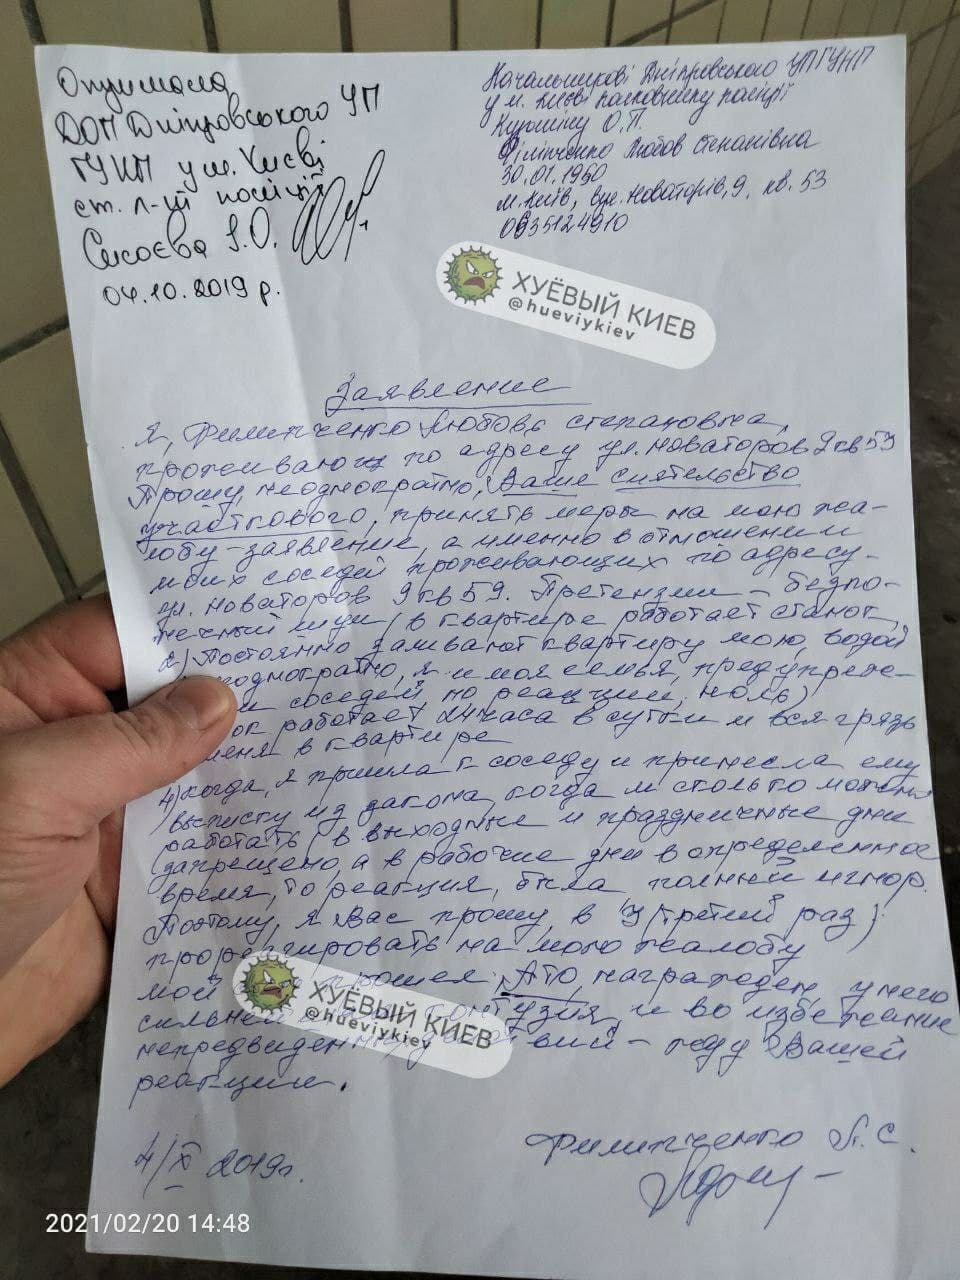 Отримала
ДОП Дніпровського УП
ГУНП у м. Києві
ст. л-т поліції
Сисоєва І.О.
04.10.2019 р.
Начальникові Дніпровського УПГУНП
у м. Києві полковнику поліції
Кузміну О.П.
Філіпченко Любов Степанівна
30.01.1950
м. Київ, вул. Новаторів, 9, кв. 53
0935124910
ХУЁВЫЙ КИЕВ
@hueviykiev
Заявление
Я, Филипченко Любовь Степановна,
проживающ по адресу ул. Новаторов 9 кв 53
Прошу, неоднократно, Ваше сиятельство
участкового, принять меры на мою жа-
лобу-заявление, а именно в отношении
моих соседей проживающих по адресу-
ул. Новаторов 9 кв 59. Претензии - беспо-
нечный шум, в квартире работает станок
2) Постоянно заливают квартиру мою, водой
неоднократно, я и моя семья, предупрежд-
и соседей, но реакции, ноль)
ок работает 24 часа в сутки и вся грязь
меня в квартире
4) Когда, я пришла к соседу и принесла ему
выписку из закона, когда и столько можем
работать (в выходные и праздничные дни
запрещено, а в рабочие дни в определенное
время, то реакция, была полный игнор.
Поэтому, я Вас прошу, в 3 (третий раз)
прореагировать на мою жалобу
мой прошел АТО, награжден, у него
сильней контузия, и во избежание
непредвиден вий - жду Вашей
реакции.
ХУЁВЫЙ КИЕВ
@hueviykiev
4/X 2019г.
Филипченко Л.С.
2021/02/20 14:48